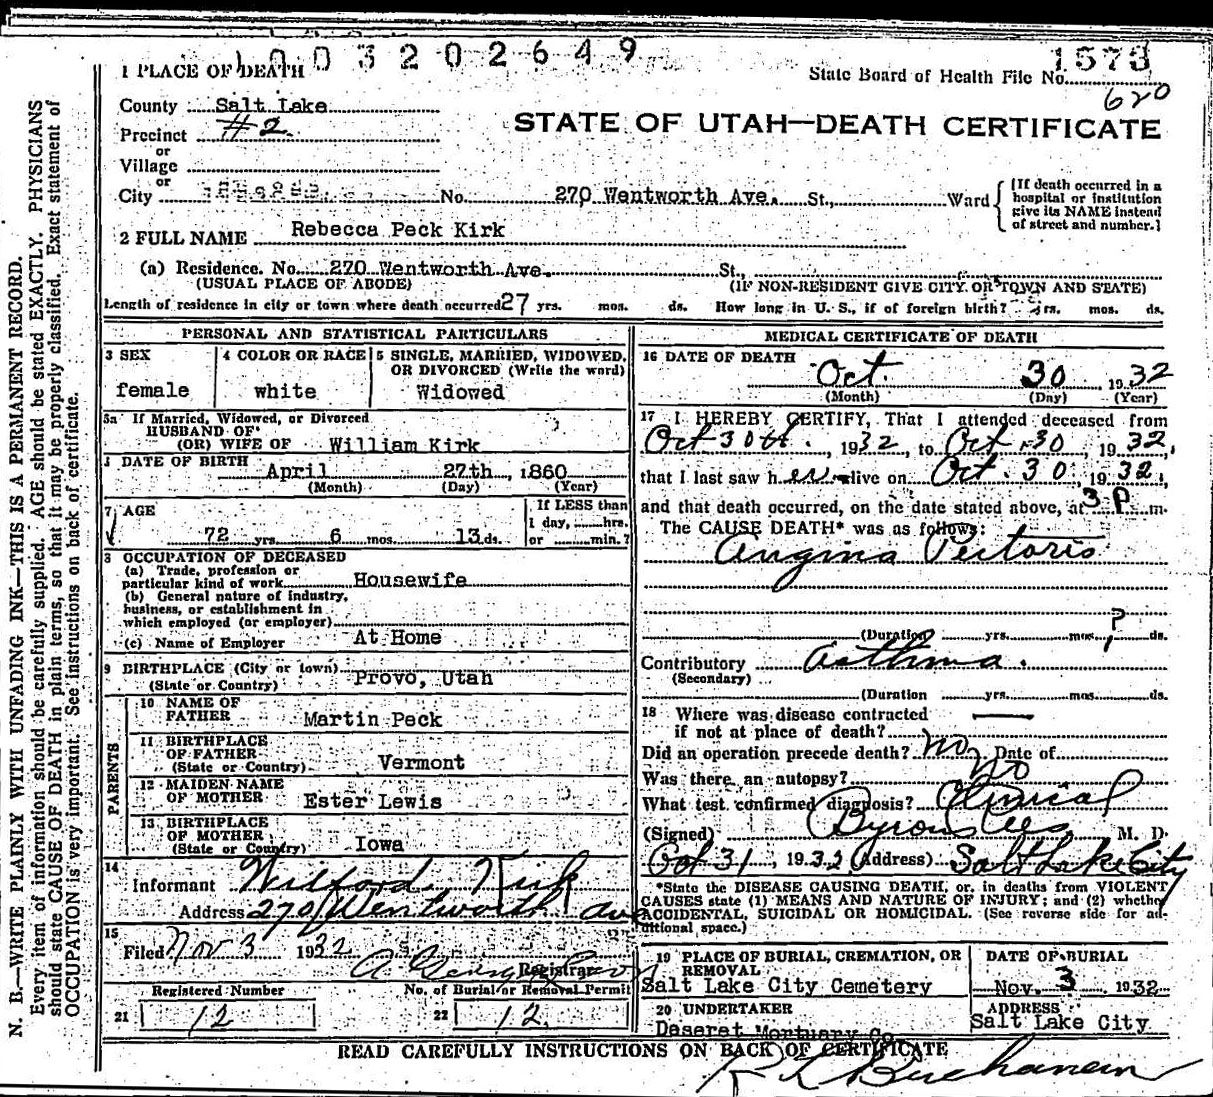 1003202649
1573
1 PLACE OF DEATH
State Board of Health File No.
620
County Salt Lake
STATE OF UTAH—DEATH CERTIFICATE
Precinct #2
or
Village
or
City No. 270 Wentworth Ave. St., Ward
[If death occurred in a
hospital or institution
give its NAME instead
of street and number.]
2 FULL NAME Rebecca Peck Kirk
(a) Residence. No. 270 Wentworth Ave. St.,
(USUAL PLACE OF ABODE) (IF NON-RESIDENT GIVE CITY OR TOWN AND STATE)
Length of residence in city or town where death occurred 27 yrs. mos. ds. How long in U. S., if of foreign birth? yrs. mos. ds.
PERSONAL AND STATISTICAL PARTICULARS
3 SEX
female
4 COLOR OR RACE
white
5 SINGLE, MARRIED, WIDOWED,
OR DIVORCED (Write the word)
Widowed
5a If Married, Widowed, or Divorced
HUSBAND OF
(OR) WIFE OF William Kirk
DATE OF BIRTH April 27th, 1860
(Month) (Day) (Year)
7 AGE
72 yrs. 6 mos. 13 ds.
If LESS than
1 day, hrs.
or min.?
8 OCCUPATION OF DECEASED
(a) Trade, profession or
particular kind of work Housewife
(b) General nature of industry,
business, or establishment in
which employed (or employer)
(c) Name of Employer At Home
9 BIRTHPLACE (City or town)
(State or Country) Provo, Utah
PARENTS
10 NAME OF
FATHER Martin Peck
11 BIRTHPLACE
OF FATHER
(State or Country) Vermont
12 MAIDEN NAME
OF MOTHER Ester Lewis
13 BIRTHPLACE
OF MOTHER
(State or Country) Iowa
14
Informant Wilford Kirk
Address 270 Wentworth Ave
15
Filed Nov 3 1932
Registrar
Registered Number
21 12
No. of Burial or Removal Permit
22 12
MEDICAL CERTIFICATE OF DEATH
16 DATE OF DEATH
Oct. 30, 1932
(Month) (Day) (Year)
17 I HEREBY CERTIFY, That I attended deceased from
Oct 30th, 1932, to Oct 30, 1932,
that I last saw her alive on Oct. 30, 1932,
and that death occurred, on the date stated above, at 3 P m.
The CAUSE DEATH* was as follows:
Angina Pectoris
(Duration yrs. mos. ? ds.
Contributory Asthma.
(Secondary)
(Duration yrs. mos. ds.
18 Where was disease contracted
if not at place of death?
Did an operation precede death? No Date of
Was there an autopsy? No
What test confirmed diagnosis? Clinical
(Signed) Byron Rees, M. D.
Oct 31, 1932 (Address) Salt Lake City
*State the DISEASE CAUSING DEATH, or, in deaths from VIOLENT
CAUSES state (1) MEANS AND NATURE OF INJURY; and (2) whether
ACCIDENTAL, SUICIDAL OR HOMICIDAL. (See reverse side for ad-
ditional space.)
19 PLACE OF BURIAL, CREMATION, OR
REMOVAL
Salt Lake City Cemetery
DATE OF BURIAL
Nov. 3 1932
20 UNDERTAKER
Deseret Mortuary Co
ADDRESS
Salt Lake City
READ CAREFULLY INSTRUCTIONS ON BACK OF CERTIFICATE
R L Buchanan
N. B.—WRITE PLAINLY WITH UNFADING INK—THIS IS A PERMANENT RECORD.
Every item of information should be carefully supplied. AGE should be stated EXACTLY. PHYSICIANS
should state CAUSE OF DEATH in plain terms, so that it may be properly classified. Exact statement of
OCCUPATION is very important. See instructions on back of certificate.